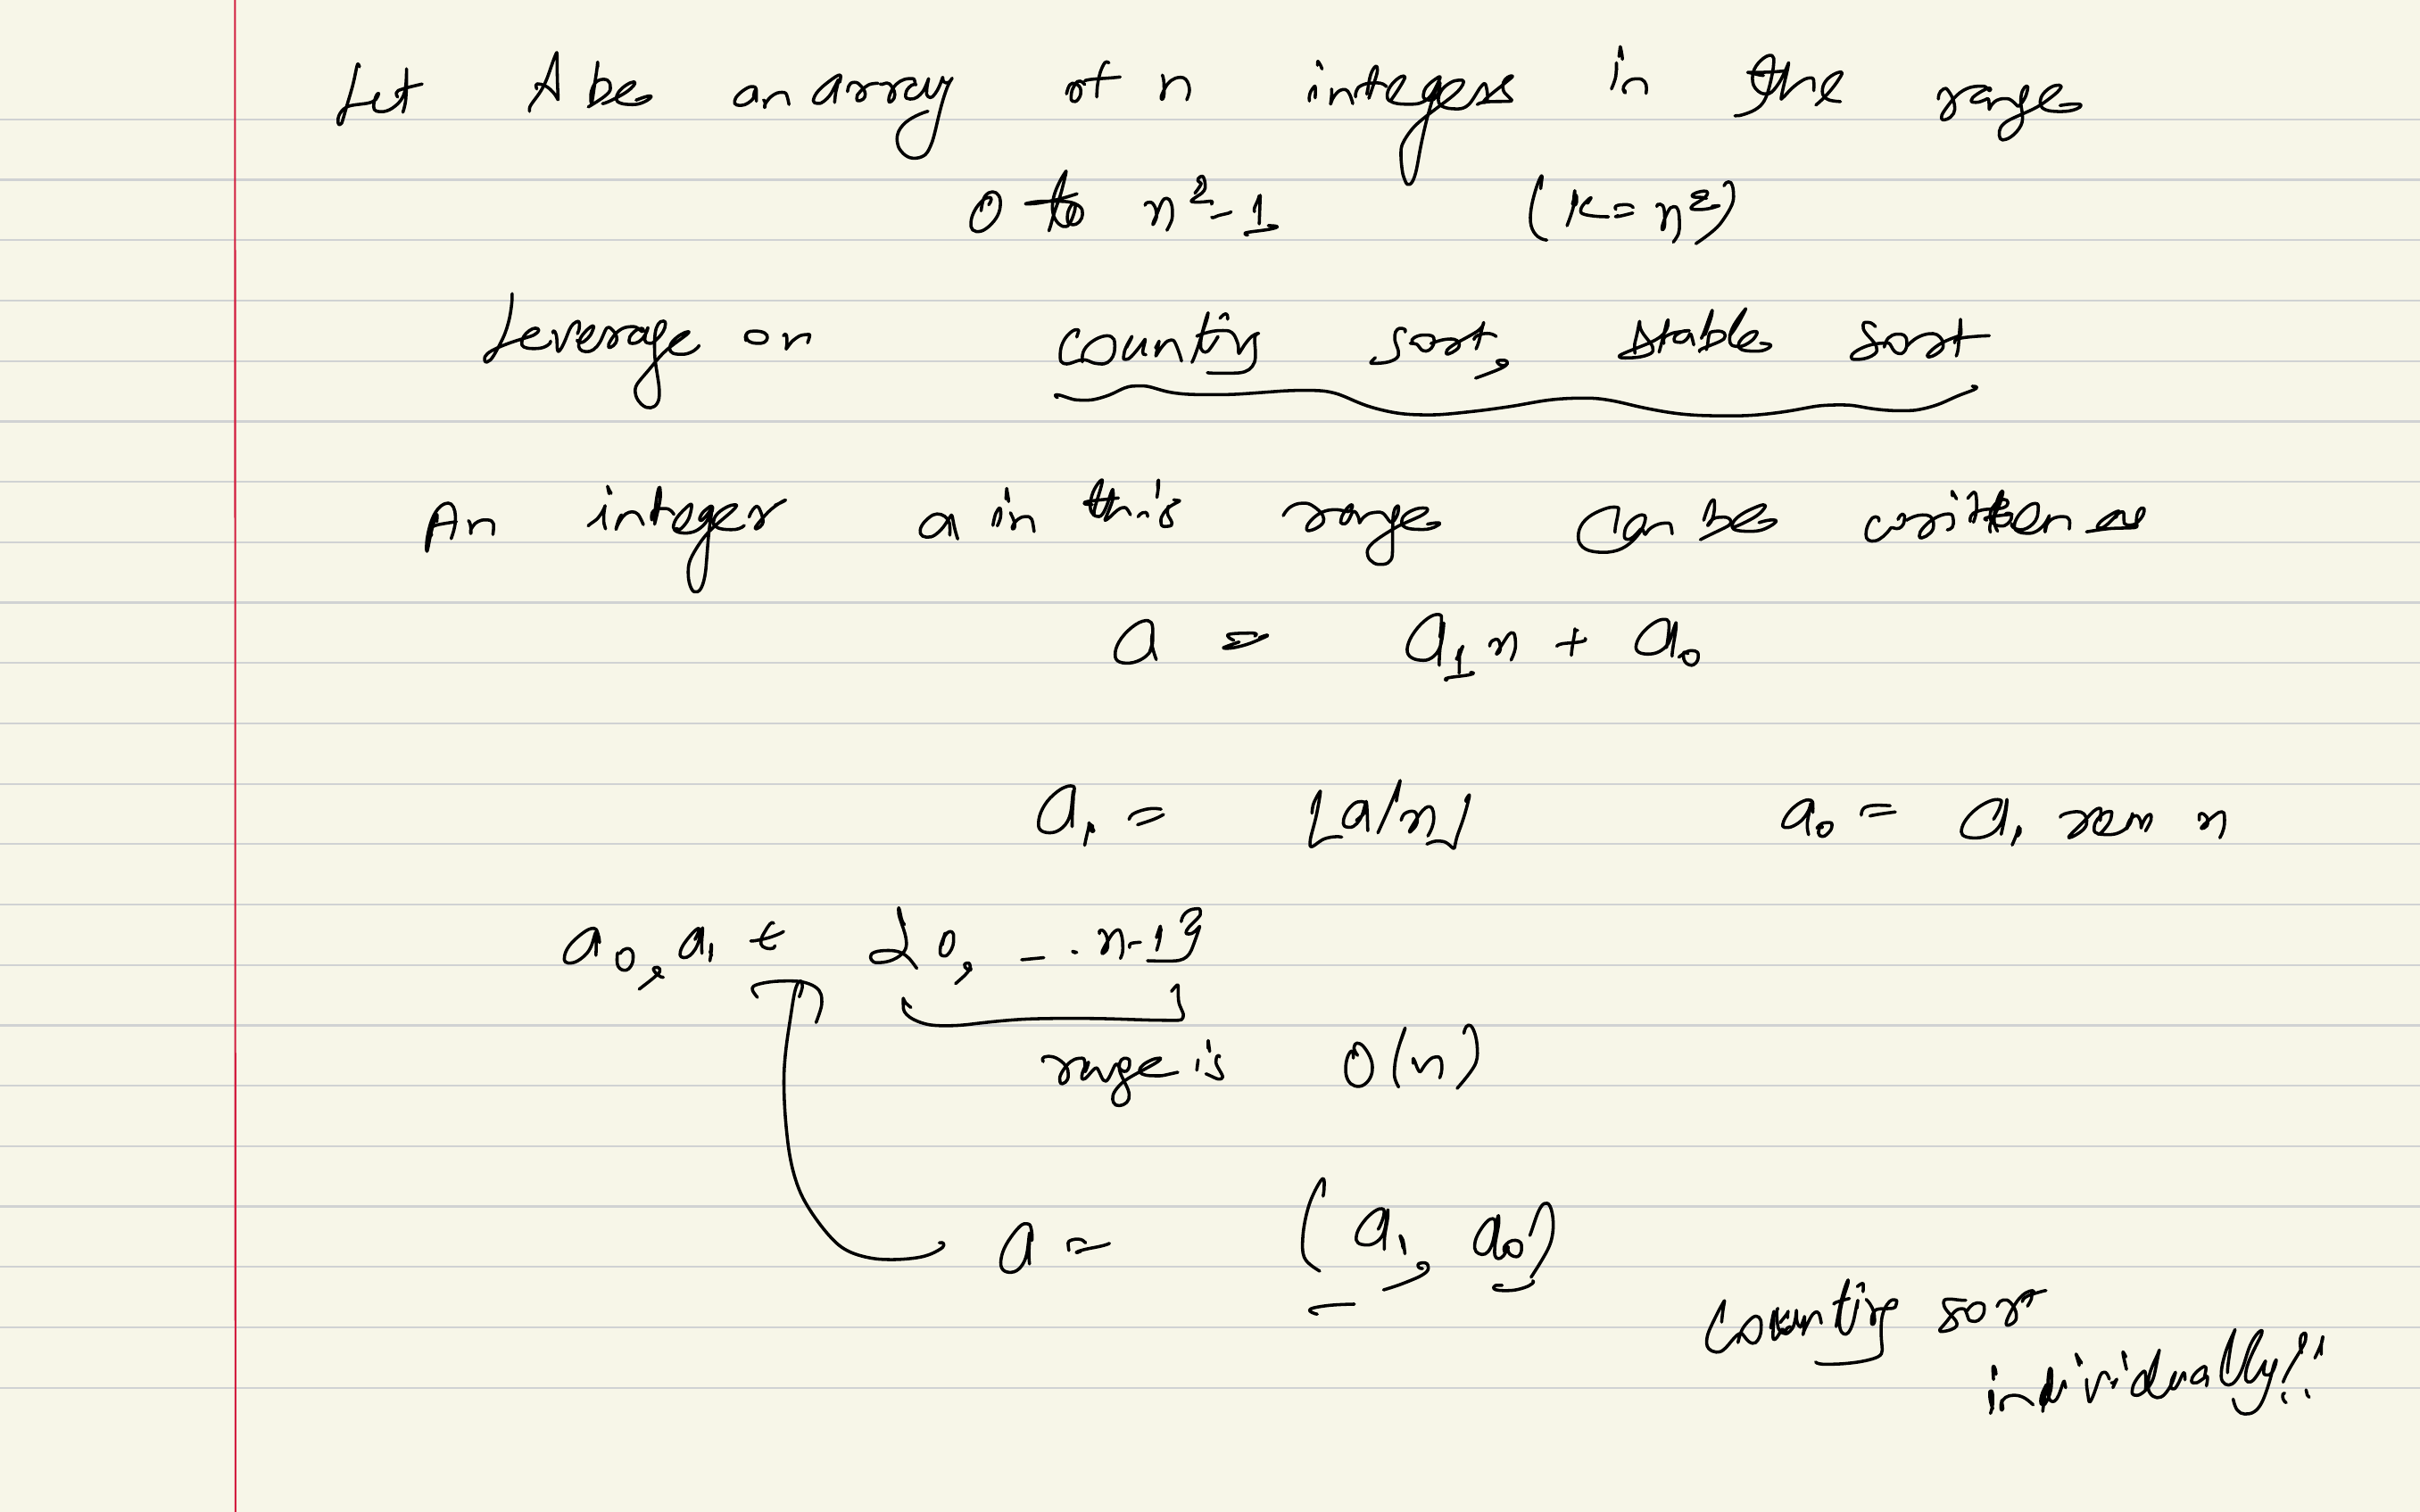 Let A be an array of n integers in the range
0 to n²-1 (k=n²)
Leverage on counting sort, stable sort
An integer a in this range can be written as
a = a₁n + a₀
a₁ = ⌊a/n⌋ a₀ = a, rem n
a₀, a₁ ∈ {0, -. n-1}
range is O(n)
a = (a₁, a₀)
counting sor
individually!!